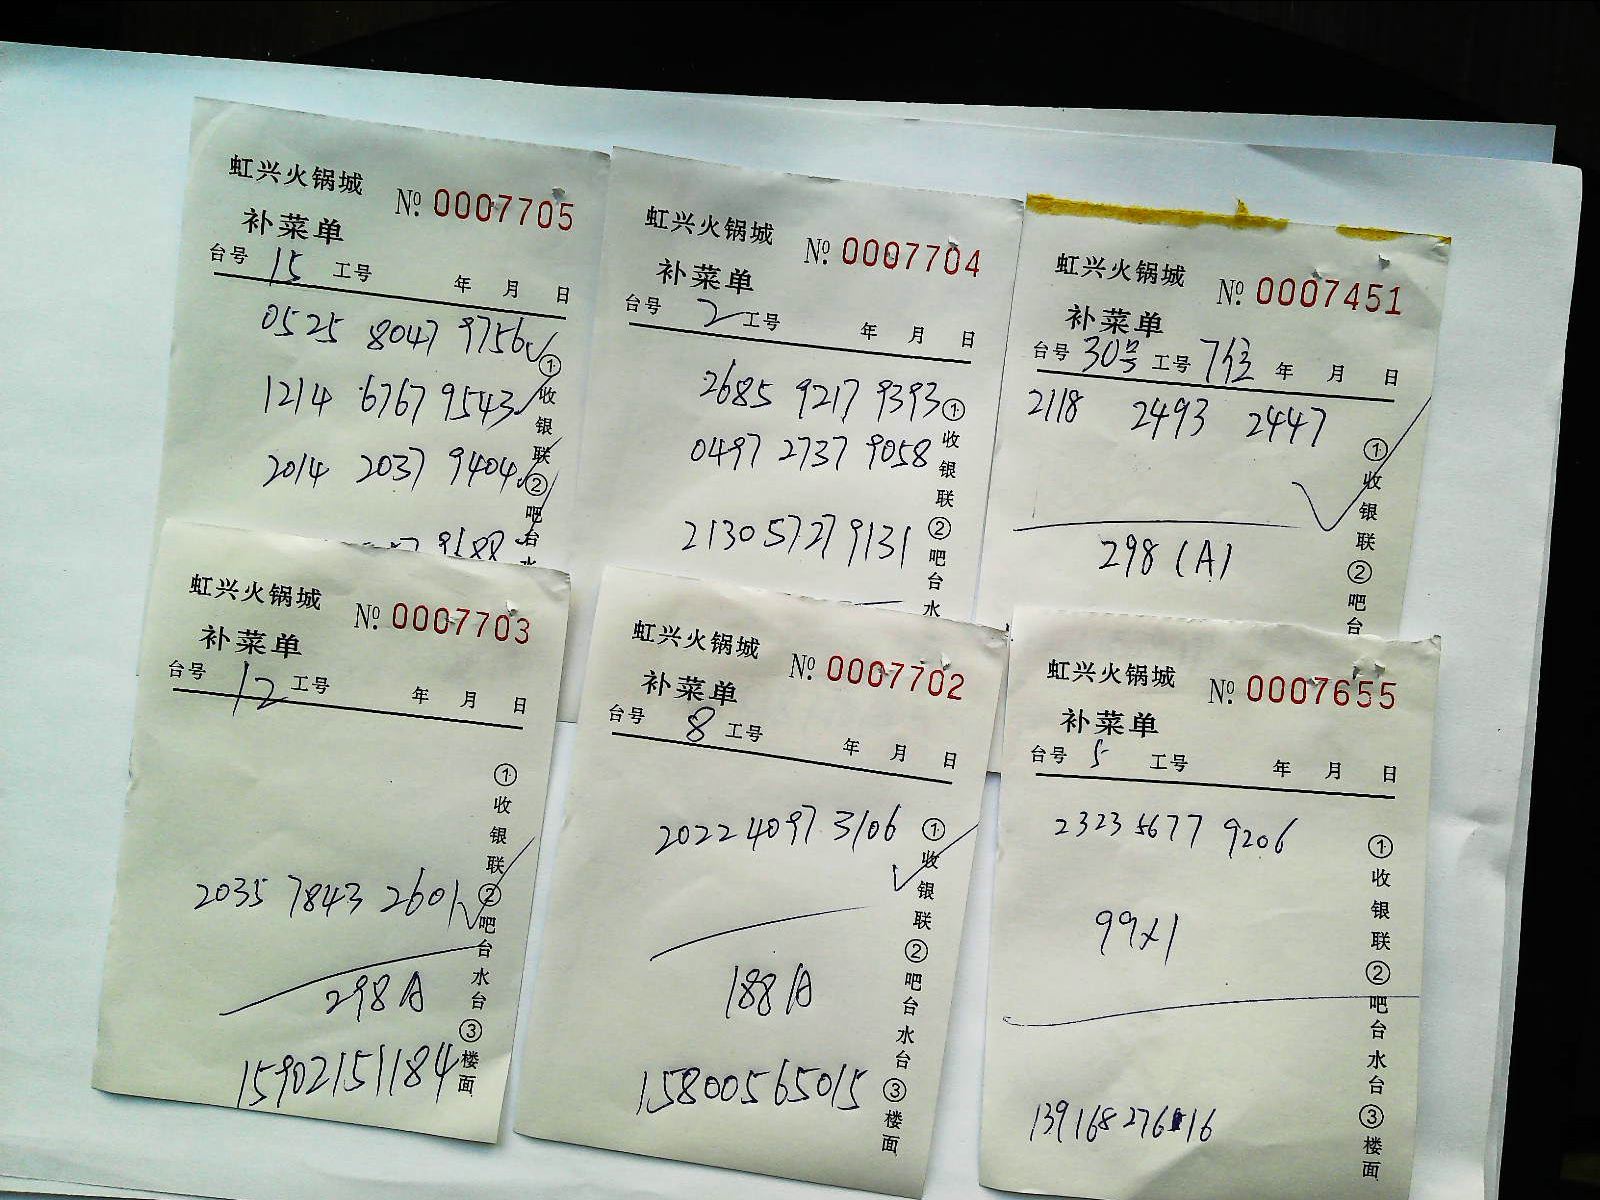 虹兴火锅城 № 0007705
补菜单
台号 15 工号 年 月 日
0525 8047 9756
1214 6767 9543
2014 2037 9404
9188
①收银联②吧台水
虹兴火锅城 № 0007704
补菜单
台号 2 工号 年 月 日
2685 9217 9393
0497 2737 9058
2130 5727 9131
①收银联②吧台水
虹兴火锅城 № 0007451
补菜单
台号 30号 工号 7位 年 月 日
2118 2493 2447
298 (A)
①收银联②吧台
虹兴火锅城 № 0007703
补菜单
台号 12 工号 年 月 日
2035 7843 2601
298 A
15902151184
①收银联②吧台水台③楼面
虹兴火锅城 № 0007702
补菜单
台号 8 工号 年 月 日
2022 4097 3106
188 A
15800565015
①收银联②吧台水台③楼面
虹兴火锅城 № 0007655
补菜单
台号 5 工号 年 月 日
2323 5677 9206
99x1
13916827616
①收银联②吧台水台③楼面